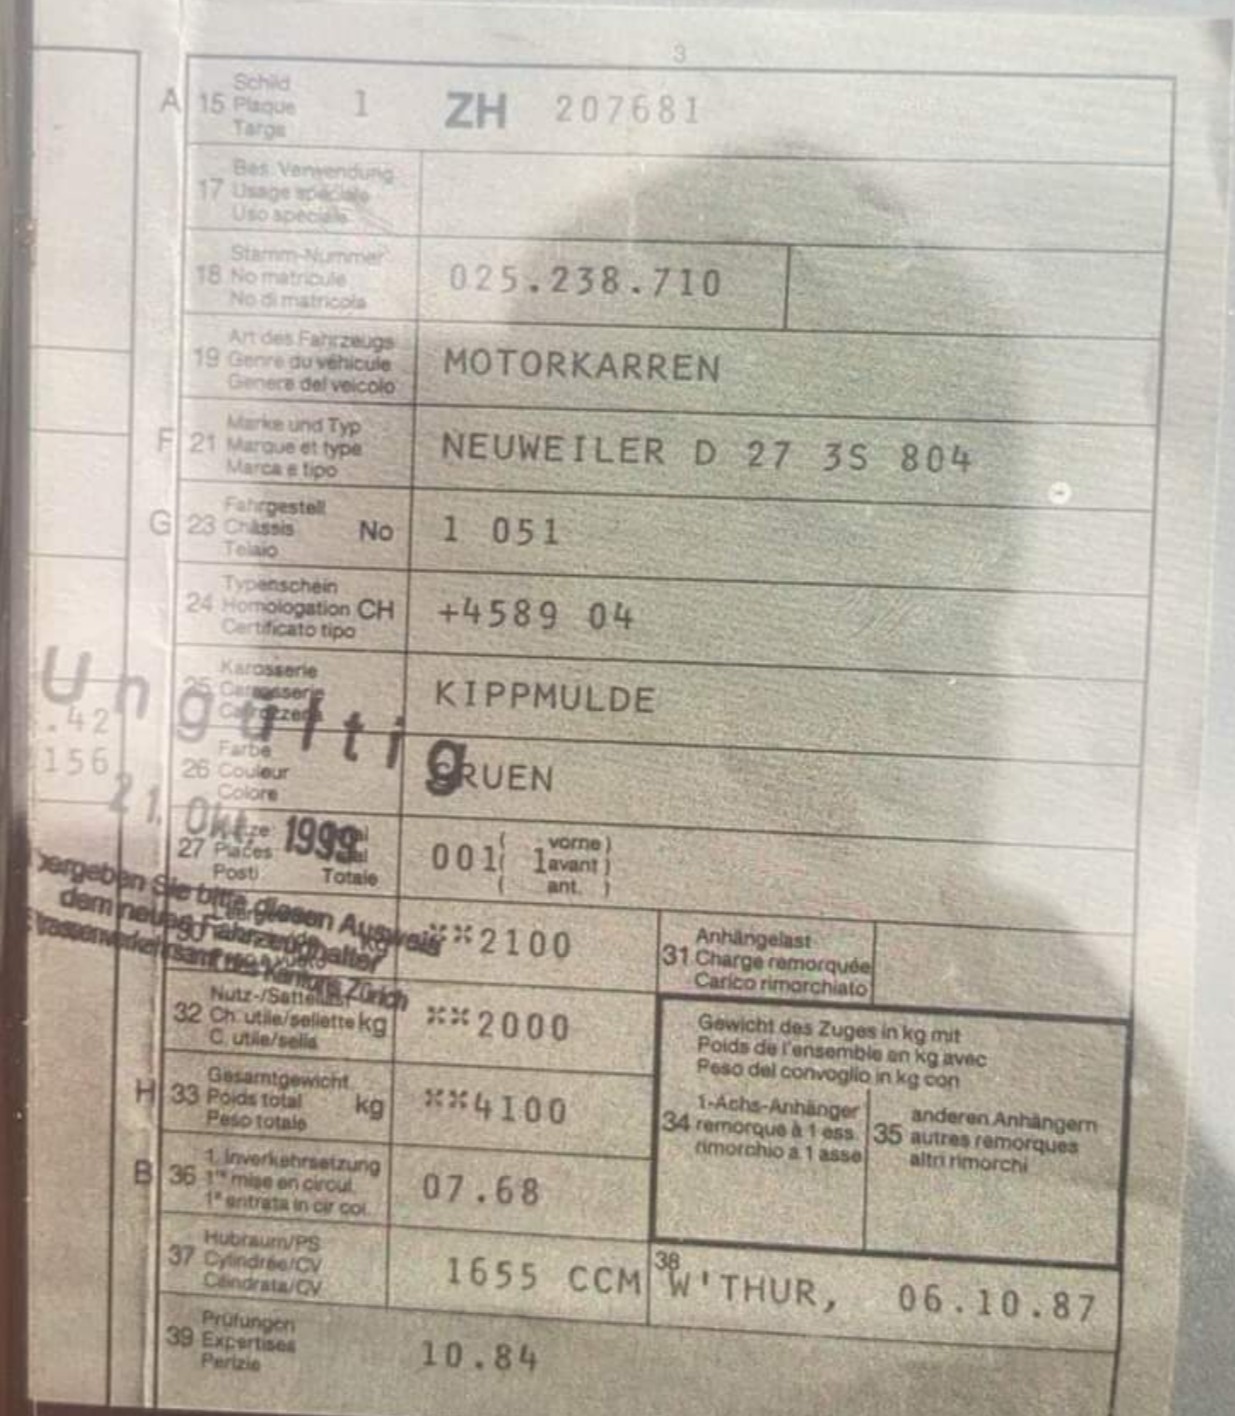 3
A 15 Schild Plaque Targa 1 ZH 207681
17 Bes. Verwendung
Usage spéciale
Uso speciale
18 Stamm-Nummer
No matricule
No di matricola
025.238.710
19 Art des Fahrzeugs
Genre du véhicule
Genere del veicolo
MOTORKARREN
F 21 Marke und Typ
Marque et type
Marca e tipo
NEUWEILER D 27 3S 804
G 23 Fahrgestell
Châssis No
Telaio
1 051
24 Typenschein
Homologation CH
Certificato tipo
+4589 04
25 Karosserie
Carrosserie
Carrozzeria
KIPPMULDE
Ungültig
.42
156
26 Farbe
Couleur
Colore
GRUEN
21. Okt. 1999
27 Places
Posti Totale
001( 1 vorne)
avant)
( ant. )
ergeben Sie bitte diesen Ausweis
dem neuen Fahrzeughalter
Strassenverkehrsamt des Kantons Zürich
kg
**2100
31 Anhängelast
Charge remorquée
Carico rimorchiato
32 Nutz-/Sattellast
Ch. utile/sellette kg
C. utile/sella
**2000
H 33 Gesamtgewicht
Poids total kg
Peso totale
**4100
Gewicht des Zuges in kg mit
Poids de l'ensemble en kg avec
Peso del convoglio in kg con
34 1-Achs-Anhänger
remorque à 1 ess.
rimorchio a 1 asse
35 anderen Anhängern
autres remorques
altri rimorchi
B 36 1. Inverkehrsetzung
1re mise en circul.
1a entrata in circol.
07.68
37 Hubraum/PS
Cylindrée/CV
Cilindrata/CV
1655 CCM
38 W'THUR, 06.10.87
39 Prüfungen
Expertises
Perizie
10.84